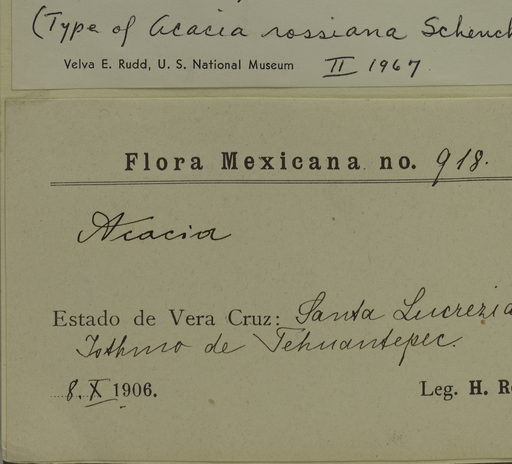 (Type of Acacia rossiana Schenck
Velva E. Rudd, U. S. National Museum II 1967
Flora Mexicana no. 918.
Acacia
Estado de Vera Cruz: Santa Lucrezia
Isthmo de Tehuantepec.
8. X 1906.
Leg. H. R